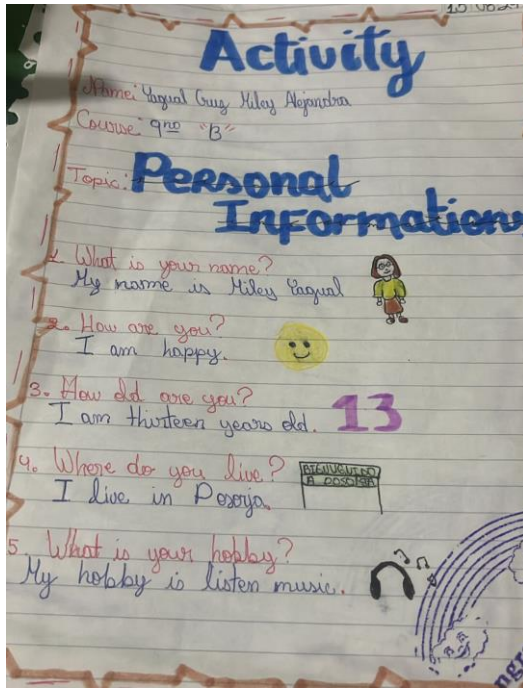 Activity
Name: Yagual Cruz Miley Alejandra
Course: 9no "B"
Topic: Personal
Information
1. What is your name?
My name is Miley Yagual
2. How are you?
I am happy.
3. How old are you?
I am thirteen years old. 13
4. Where do you live?
BIENVENIDO
A POSORJA
I live in Posorja.
5. What is your hobby?
My hobby is listen music.